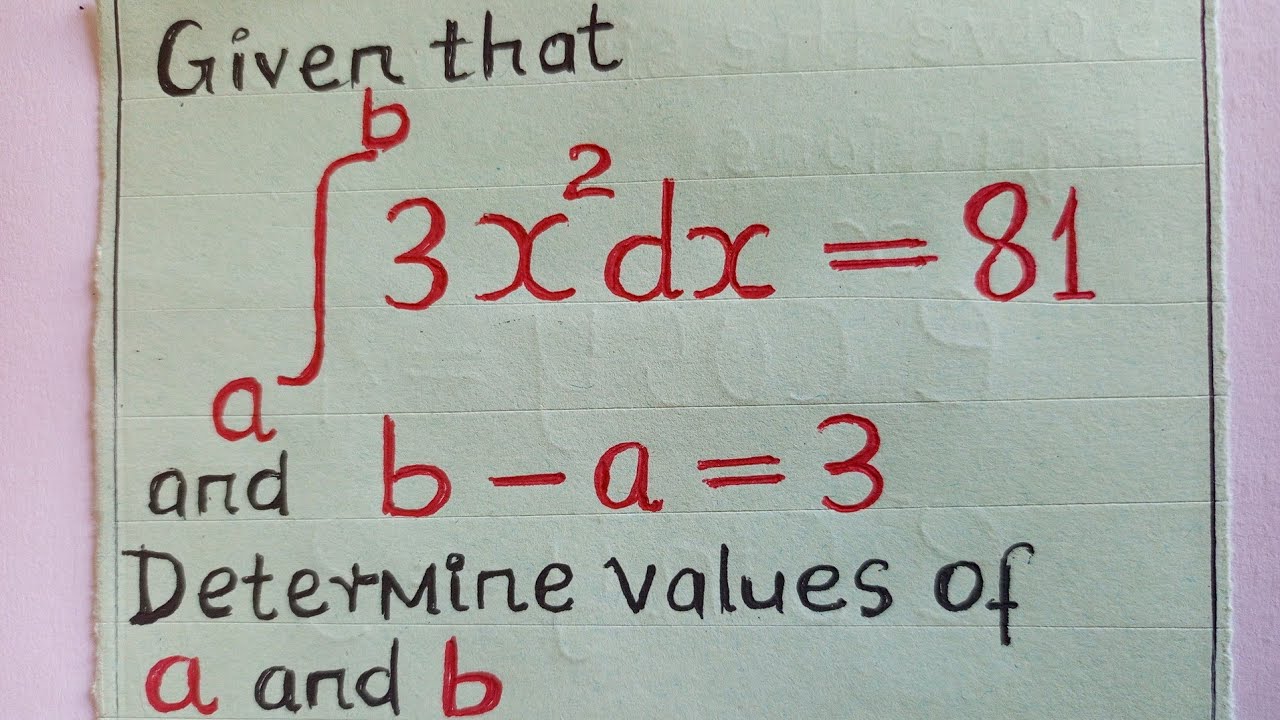 Given that
∫ₐᵇ 3x² dx = 81
and b - a = 3
Determine values of
a and b